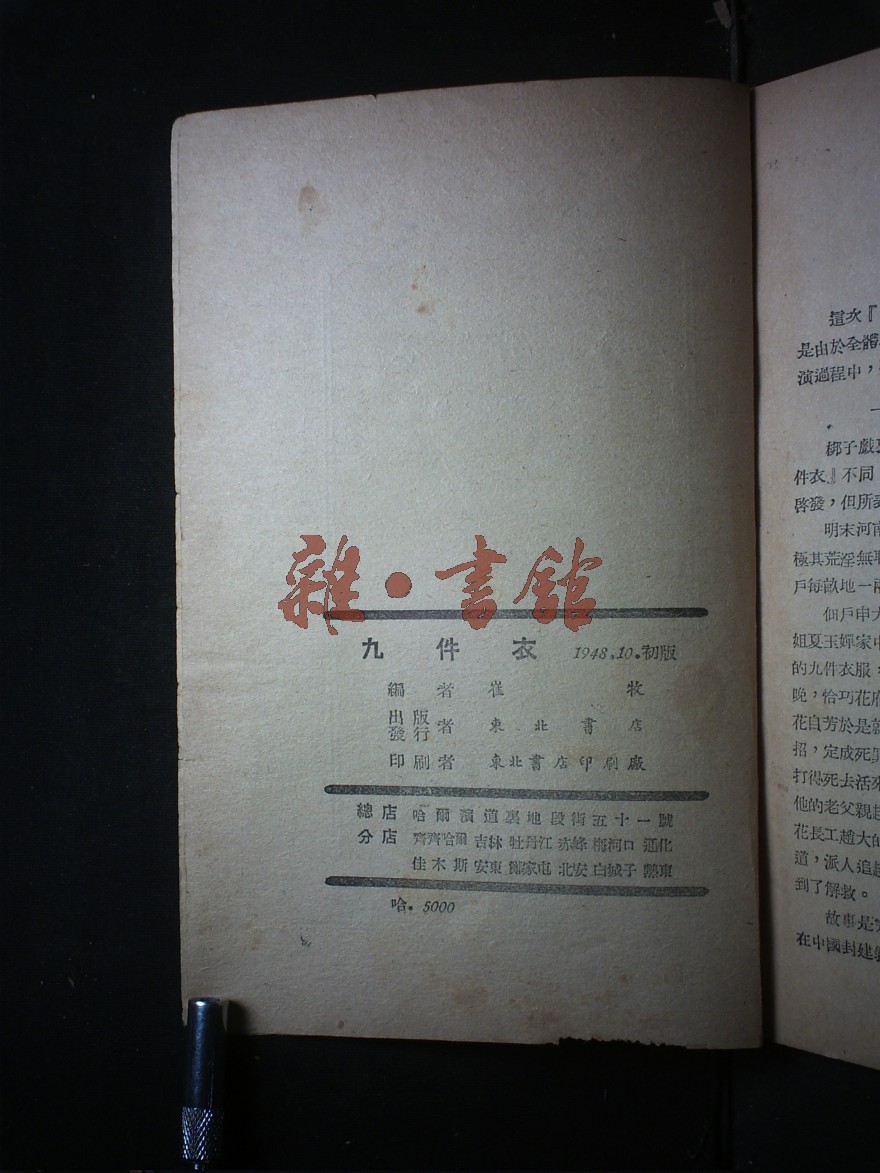 雜·書館
九件衣 1948.10.初版
編者 崔牧
出版
發行者 東北書店
印刷者 東北書店印刷廠
總店 哈爾濱道裏地段街五十一號
分店 齊齊哈爾 吉林 牡丹江 赤峰 梅河口 通化
佳木斯 安東 鄭家屯 北安 白城子 熱東
哈. 5000
這次『
是由於全體
演過程中，
一
梆子戲
件衣』不同
啓發，但所
明末河南
極其荒淫無
戶每畝地一
佃戶申大
姐夏玉嬋家中
的九件衣服，
晚，恰巧花府
花自芳於是
招，定成死罪
打得死去活來
他的老父親
花長工趙大的
道，派人追
到了解救。
故事是
在中國封建